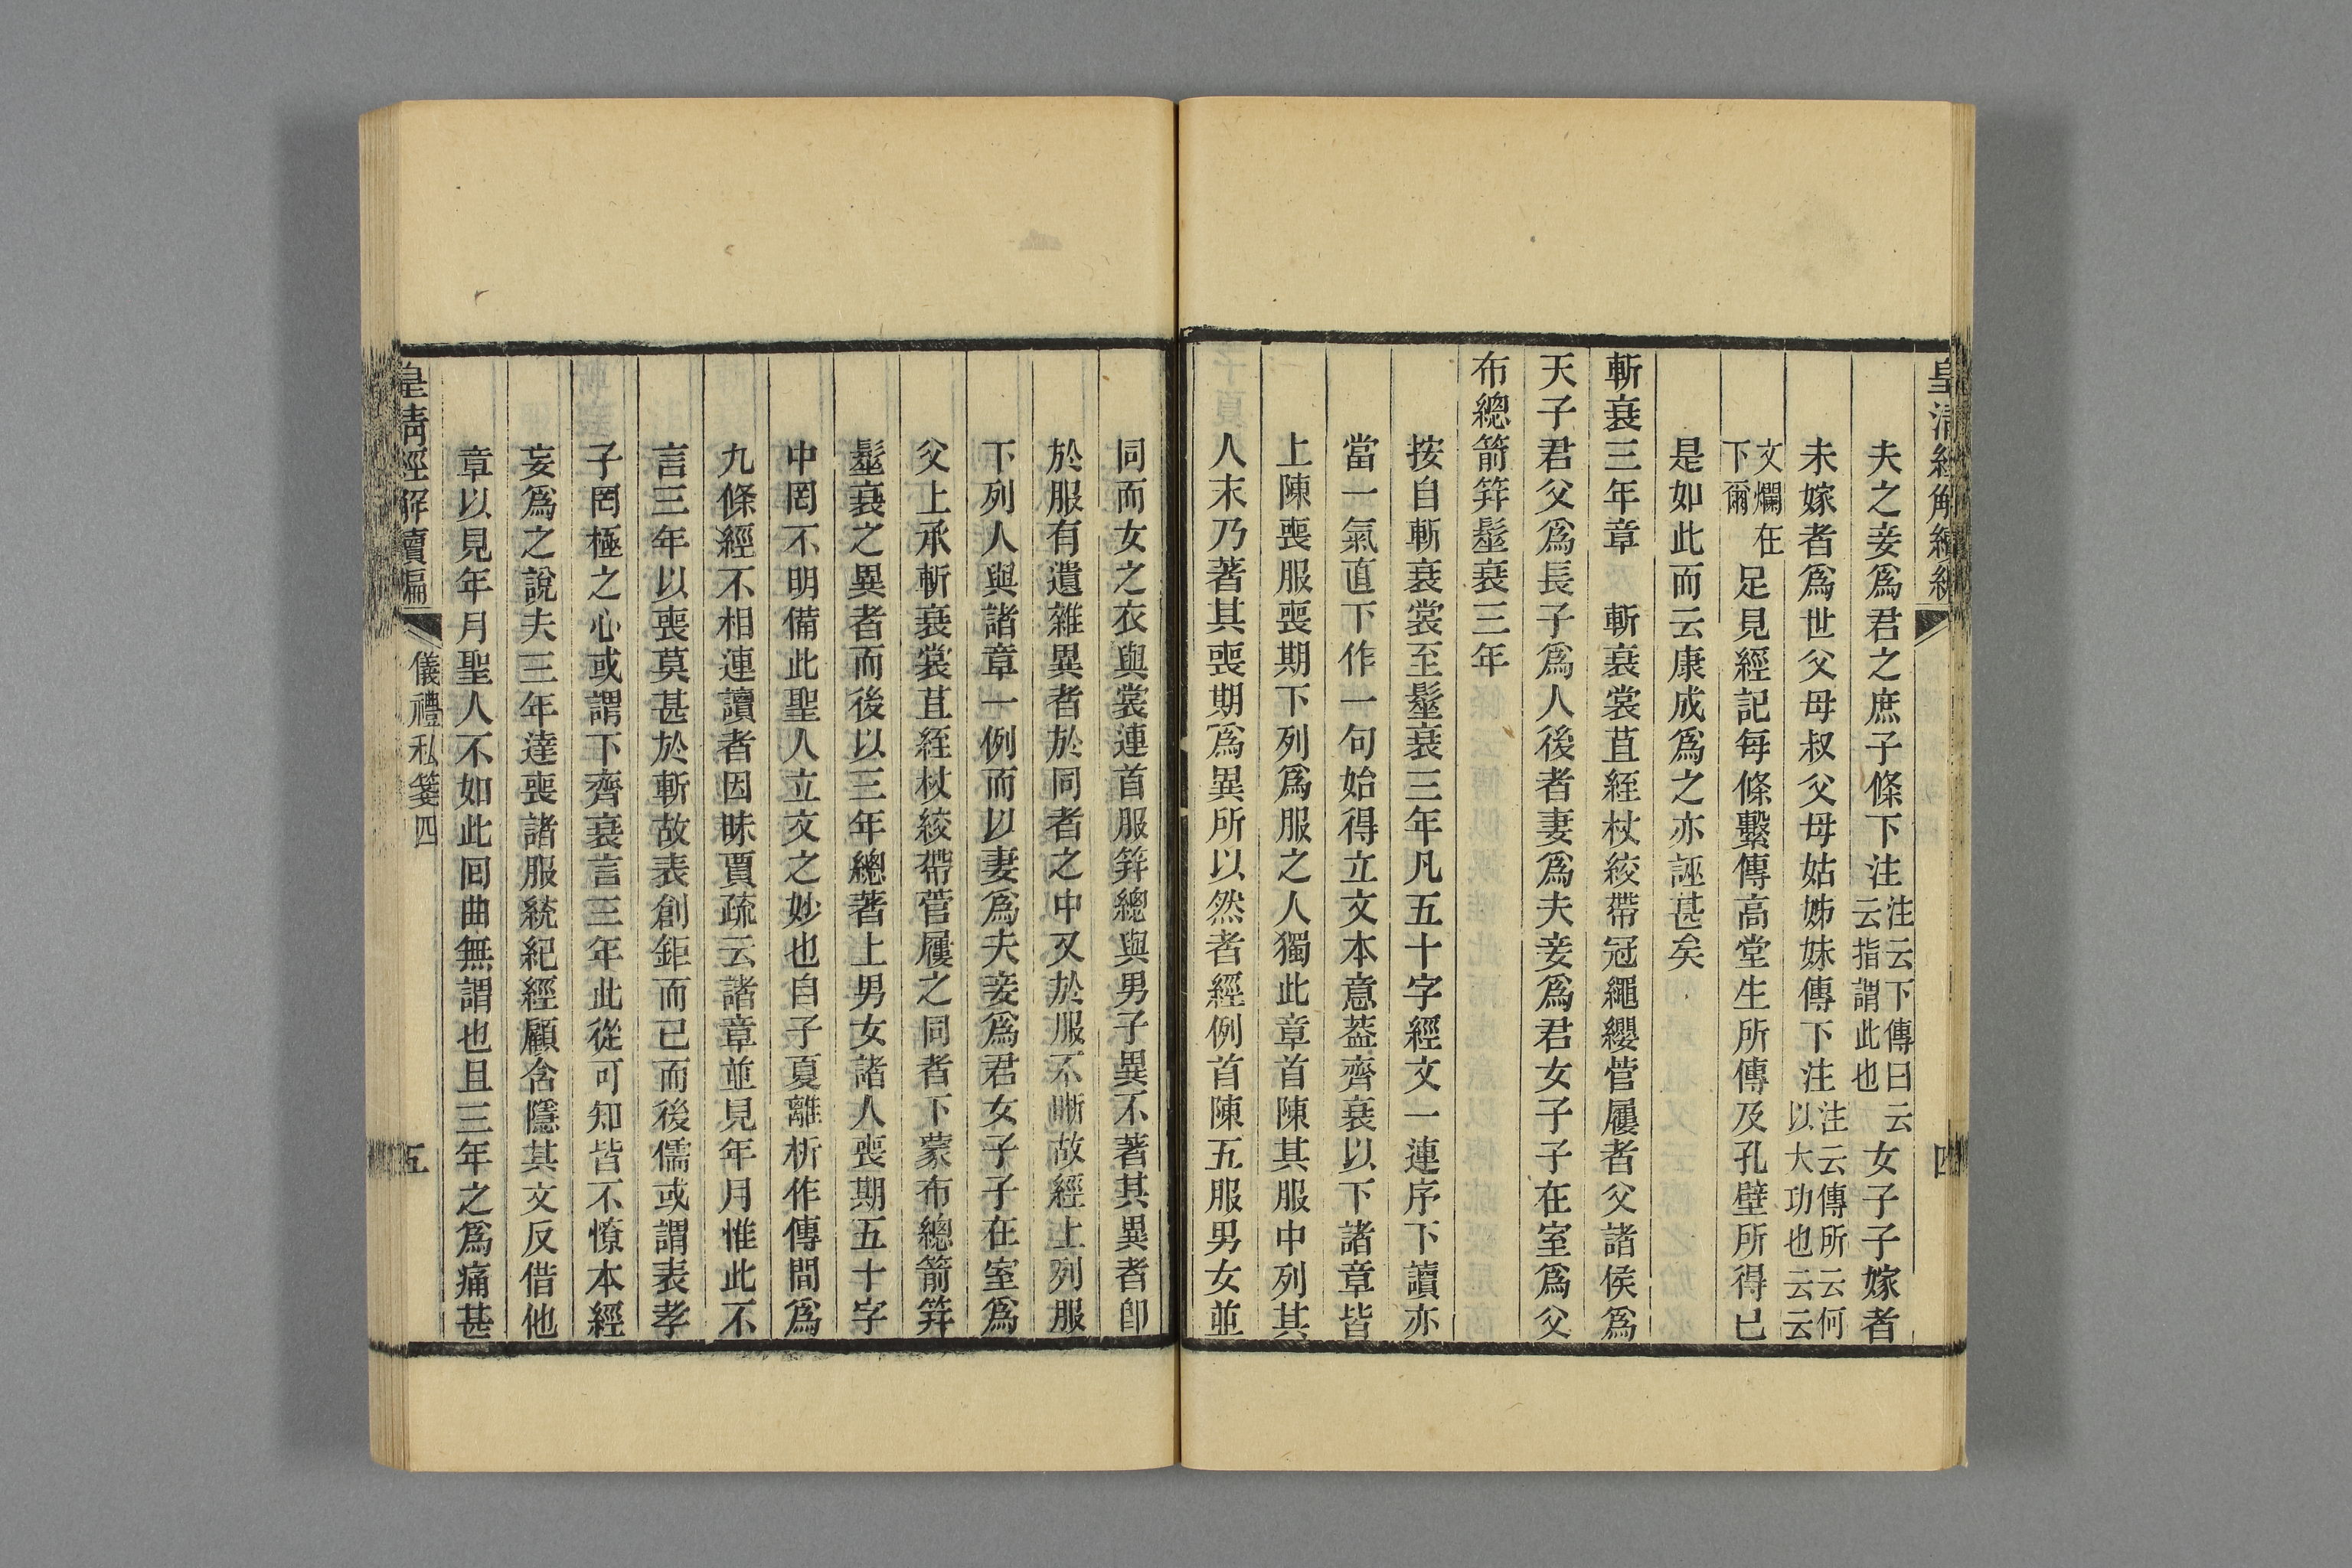 皇清經解續編
四
夫之妾爲君之庶子條下注注云下傳曰云云指謂此也女子子嫁者
未嫁者爲世父母叔父母姑姊妹傳下注注云傳所云何以大功也云云
文爛在下爾足見經記每條繫傳高堂生所傳及孔壁所得已
是如此而云康成爲之亦誣甚矣
斬衰三年章　斬衰裳苴絰杖絞帶冠繩纓菅屨者父諸侯爲
天子君父爲長子爲人後者妻爲夫妾爲君女子子在室爲父
布總箭筓髽衰三年
按自斬衰裳至髽衰三年凡五十字經文一連序下讀亦
當一氣直下作一句始得立文本意葢齊衰以下諸章皆
上陳喪服喪期下列爲服之人獨此章首陳其服中列其
人末乃著其喪期爲異所以然者經例首陳五服男女並
同而女之衣與裳連首服筓總與男子異不著其異者卽
於服有遺雜異者於同者之中又於服不晣故經上列服
下列人與諸章一例而以妻爲夫妾爲君女子子在室爲
父上承斬衰裳苴絰杖絞帶菅屨之同者下蒙布總箭筓
髽衰之異者而後以三年總著上男女諸人喪期五十字
中罔不明備此聖人立文之妙也自子夏離析作傳間爲
九條經不相連讀者因昧賈疏云諸章並見年月惟此不
言三年以喪莫甚於斬故表創鉅而已而後儒或謂表孝
子罔極之心或謂下齊衰言三年此從可知皆不憭本經
妄爲之說夫三年達喪諸服統紀經顧含隱其文反借他
章以見年月聖人不如此囘曲無謂也且三年之爲痛甚
皇清經解續編
儀禮私箋四
五